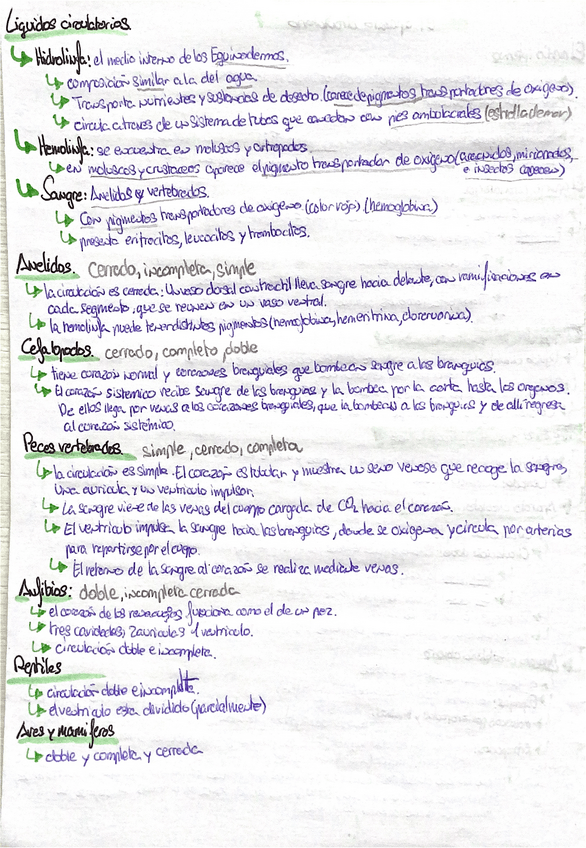 Líquidos circulatorios
Hidrolinfa: el medio interno de los Equinodermos.
composición similar a la del agua.
Transporta nutrientes y sustancias de desecho. (carece de pigmentos transportadores de oxígeno).
circula a traves de un sistema de tubos que conectan con pies ambulacrales (estrella de mar)
Hemolinfa: se encuentra en moluscos y artropodos.
en moluscos y crustaceos aparece el pigmento transportador de oxigeno (aracnidos, miriapodos,
e insectos carecen)
Sangre: Anelidos y vertebrados.
Con pigmentos transportadores de oxígeno (color rojo) (hemoglobina)
presenta eritrocitos, leucocitos y trombocitos.
Anelidos. Cerrado, incompleta, simple
la circulación es cerrada: Un vaso dorsal contractil lleva sangre hacia delante, con ramificaciones en
cada segmento, que se reunen en un vaso ventral.
la hemolinfa puede tener distintos pigmentos (hemoglobina, hemeritrina, clorocruorina).
Cefalopodos. cerrado, completo, doble
tiene corazón normal y corazones branquiales que bombean sangre a las branquias.
El corazón sistemico recibe sangre de las branquias y la bombea por la aorta hasta los organos.
De ellos llega por venas a los corazones branquiales, que la bombean a las branquias y de alli regresa
al corazón sistemico.
Peces vertebrados. simple, cerrado, completa
la circulación es simple. El corazón es tubular y muestra un seno venoso que recoge la sangre,
una auricula y un ventriculo impulsor.
La sangre viene de las venas del cuerpo cargada de CO2 hacia el corazón.
El ventriculo impulsa la sangre hacia las branquias, donde se oxigena y circula por arterias
para repartirse por el cuerpo.
El retorno de la sangre al corazón se realiza mediante venas.
Anfibios: doble, incompleta cerrada
el corazón de los renacuajos funciona como el de un pez.
tres cavidades, 2 auriculas 1 ventriculo.
circulación doble e incompleta.
Reptiles
circulación doble e incompleta.
el ventriculo esta dividido (parcialmente)
Aves y mamiferos
doble y completa y cerrada